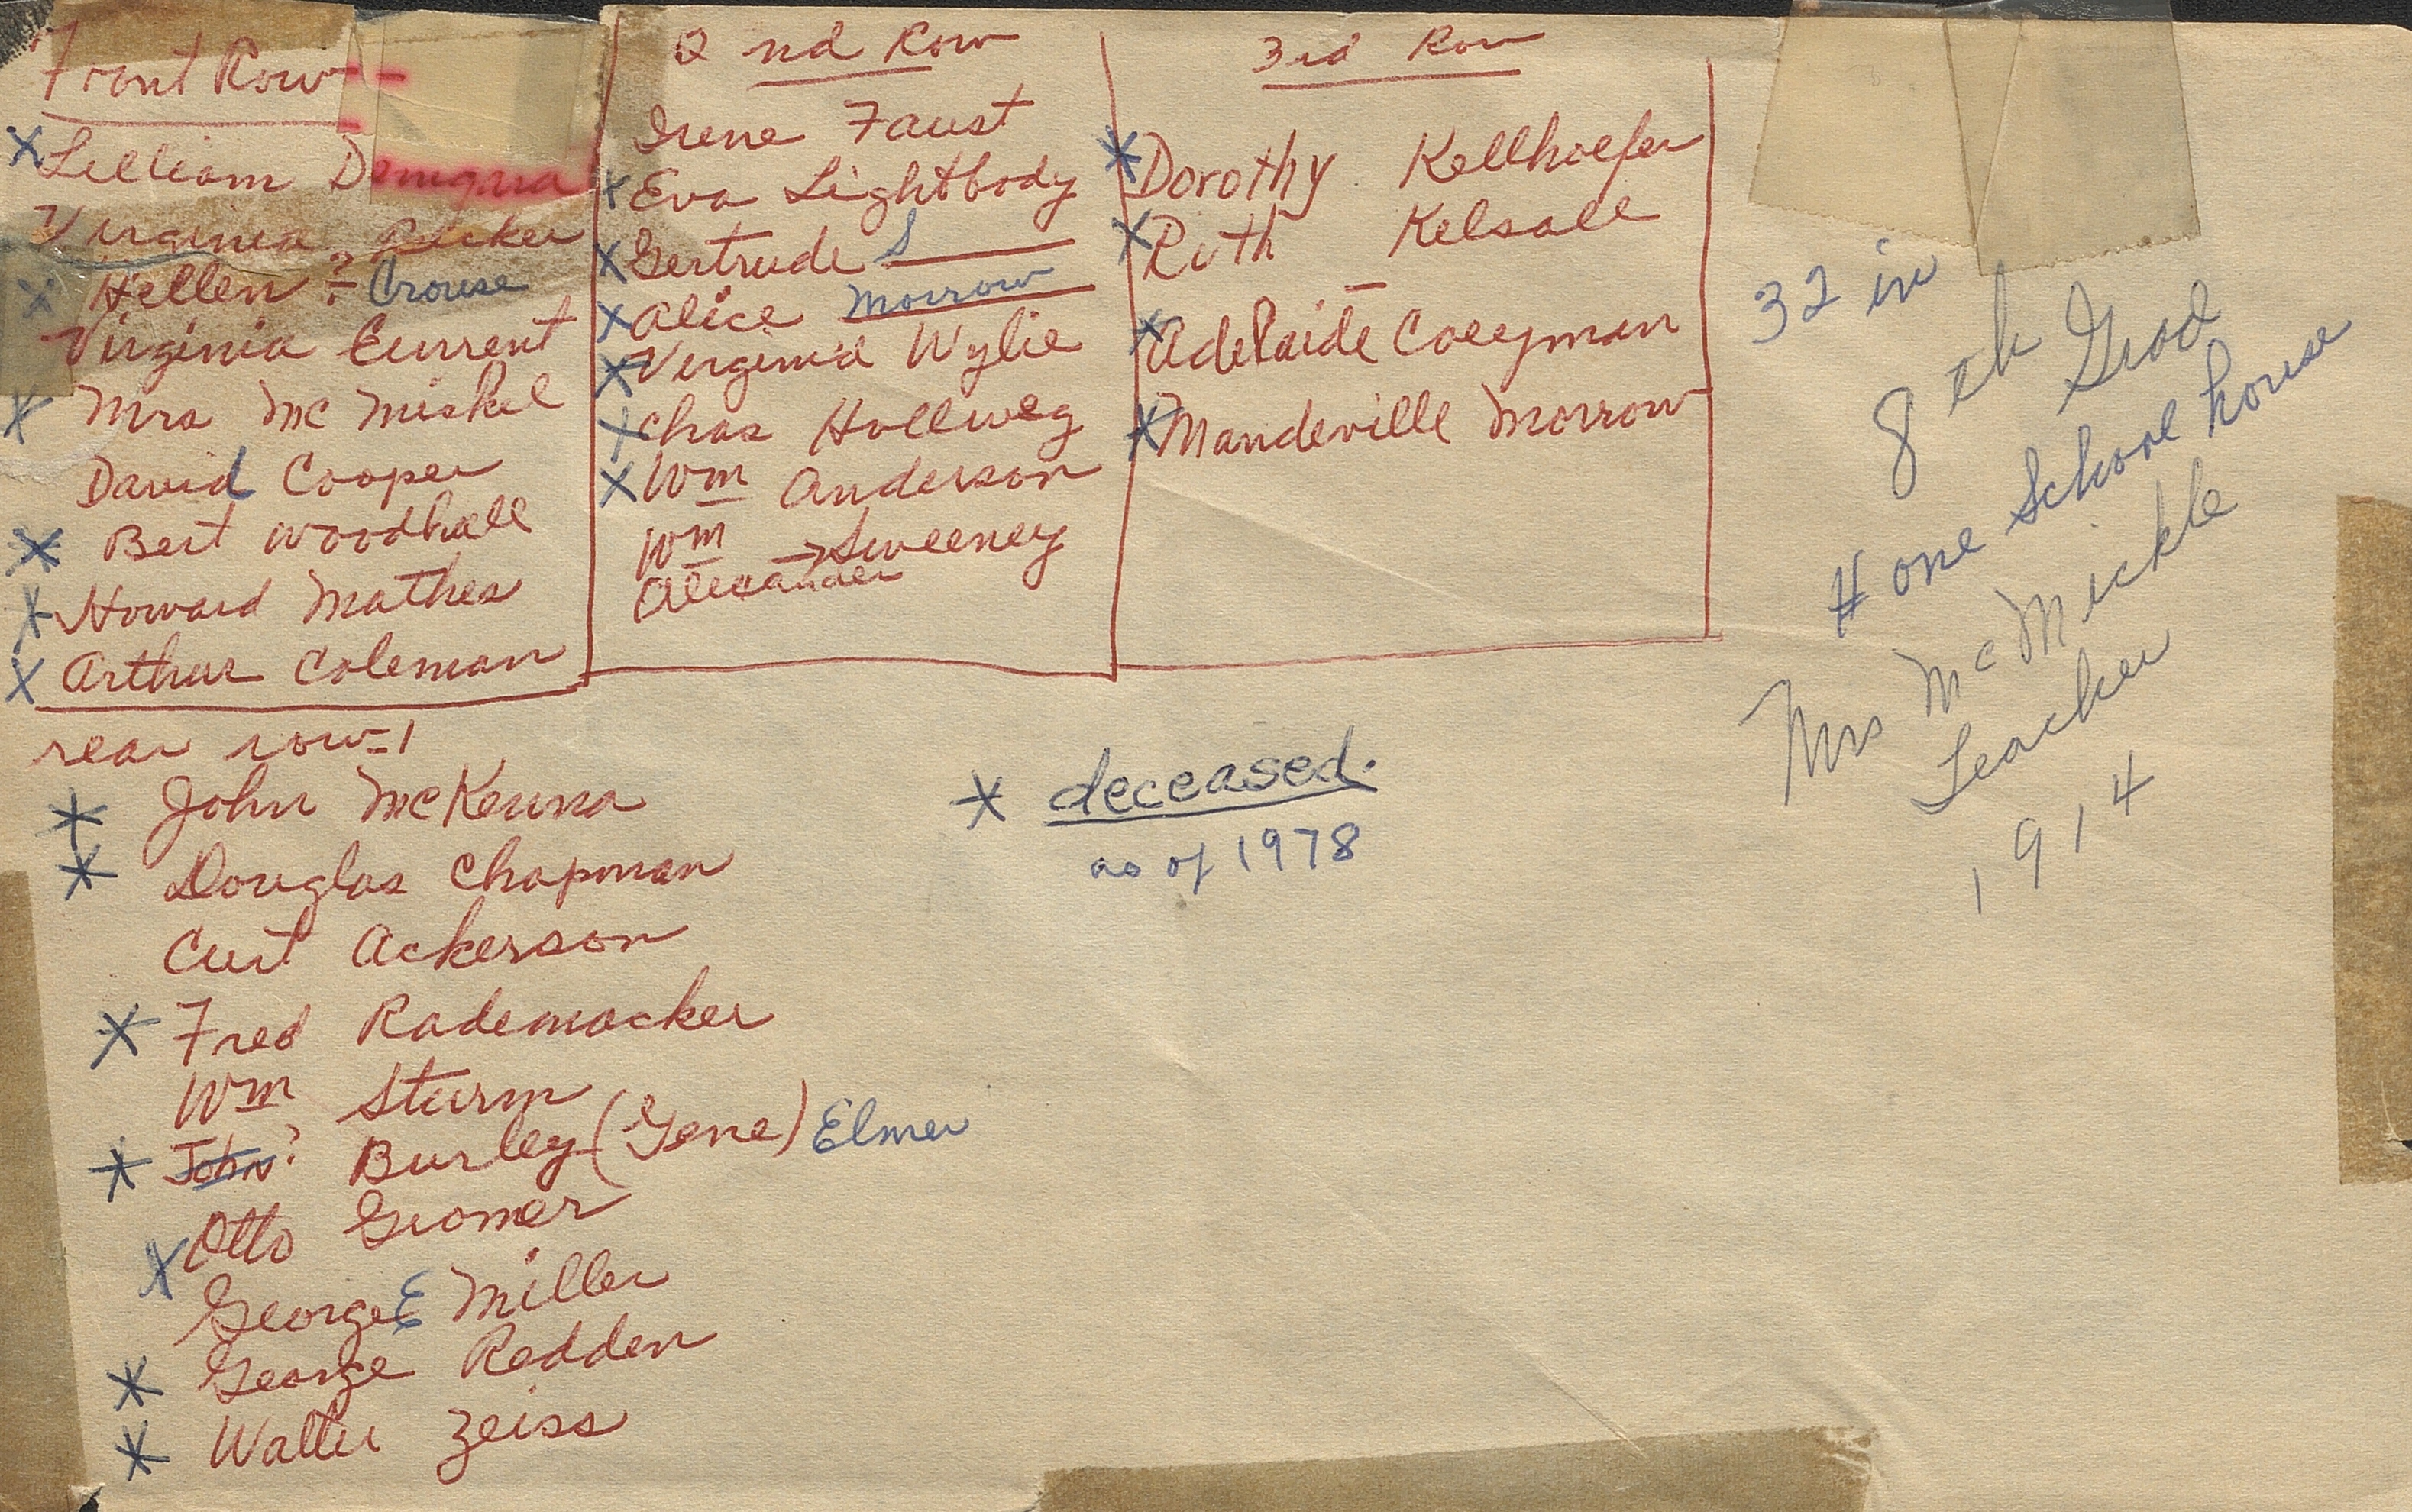 Front Row -
X Lilliam
Virginia Rucker
X Hellen ? Crouse
Virginia Current
X Mrs Mc Miskel
David Cooper
X Bert Woodhall
X Howard Mathes
X Arthur Coleman
2nd Row
Irene Faust
X Eva Lightbody
X Gertrude S
X Alice Morrow
X Virginia Wylie
X Chas Hollweg
X Wm Anderson
Wm → Sweeney
Alexander
3rd Row
X Dorothy Kellhoefer
X Ruth Kelsall
X Adelaide
X Mandeville Morrow
rear row - 1
X John McKenna
X Douglas Chapman
Curt Ackerson
X Fred Rademacker
Wm Sturm
X John? Burley (Gene) Elmer
X Otto Gromer
George E Miller
X George Redden
X Walter Zeiss
X deceased.
as of 1978
32 in
8th Grad
# one School house
Mrs McMickle
Teacher
1914